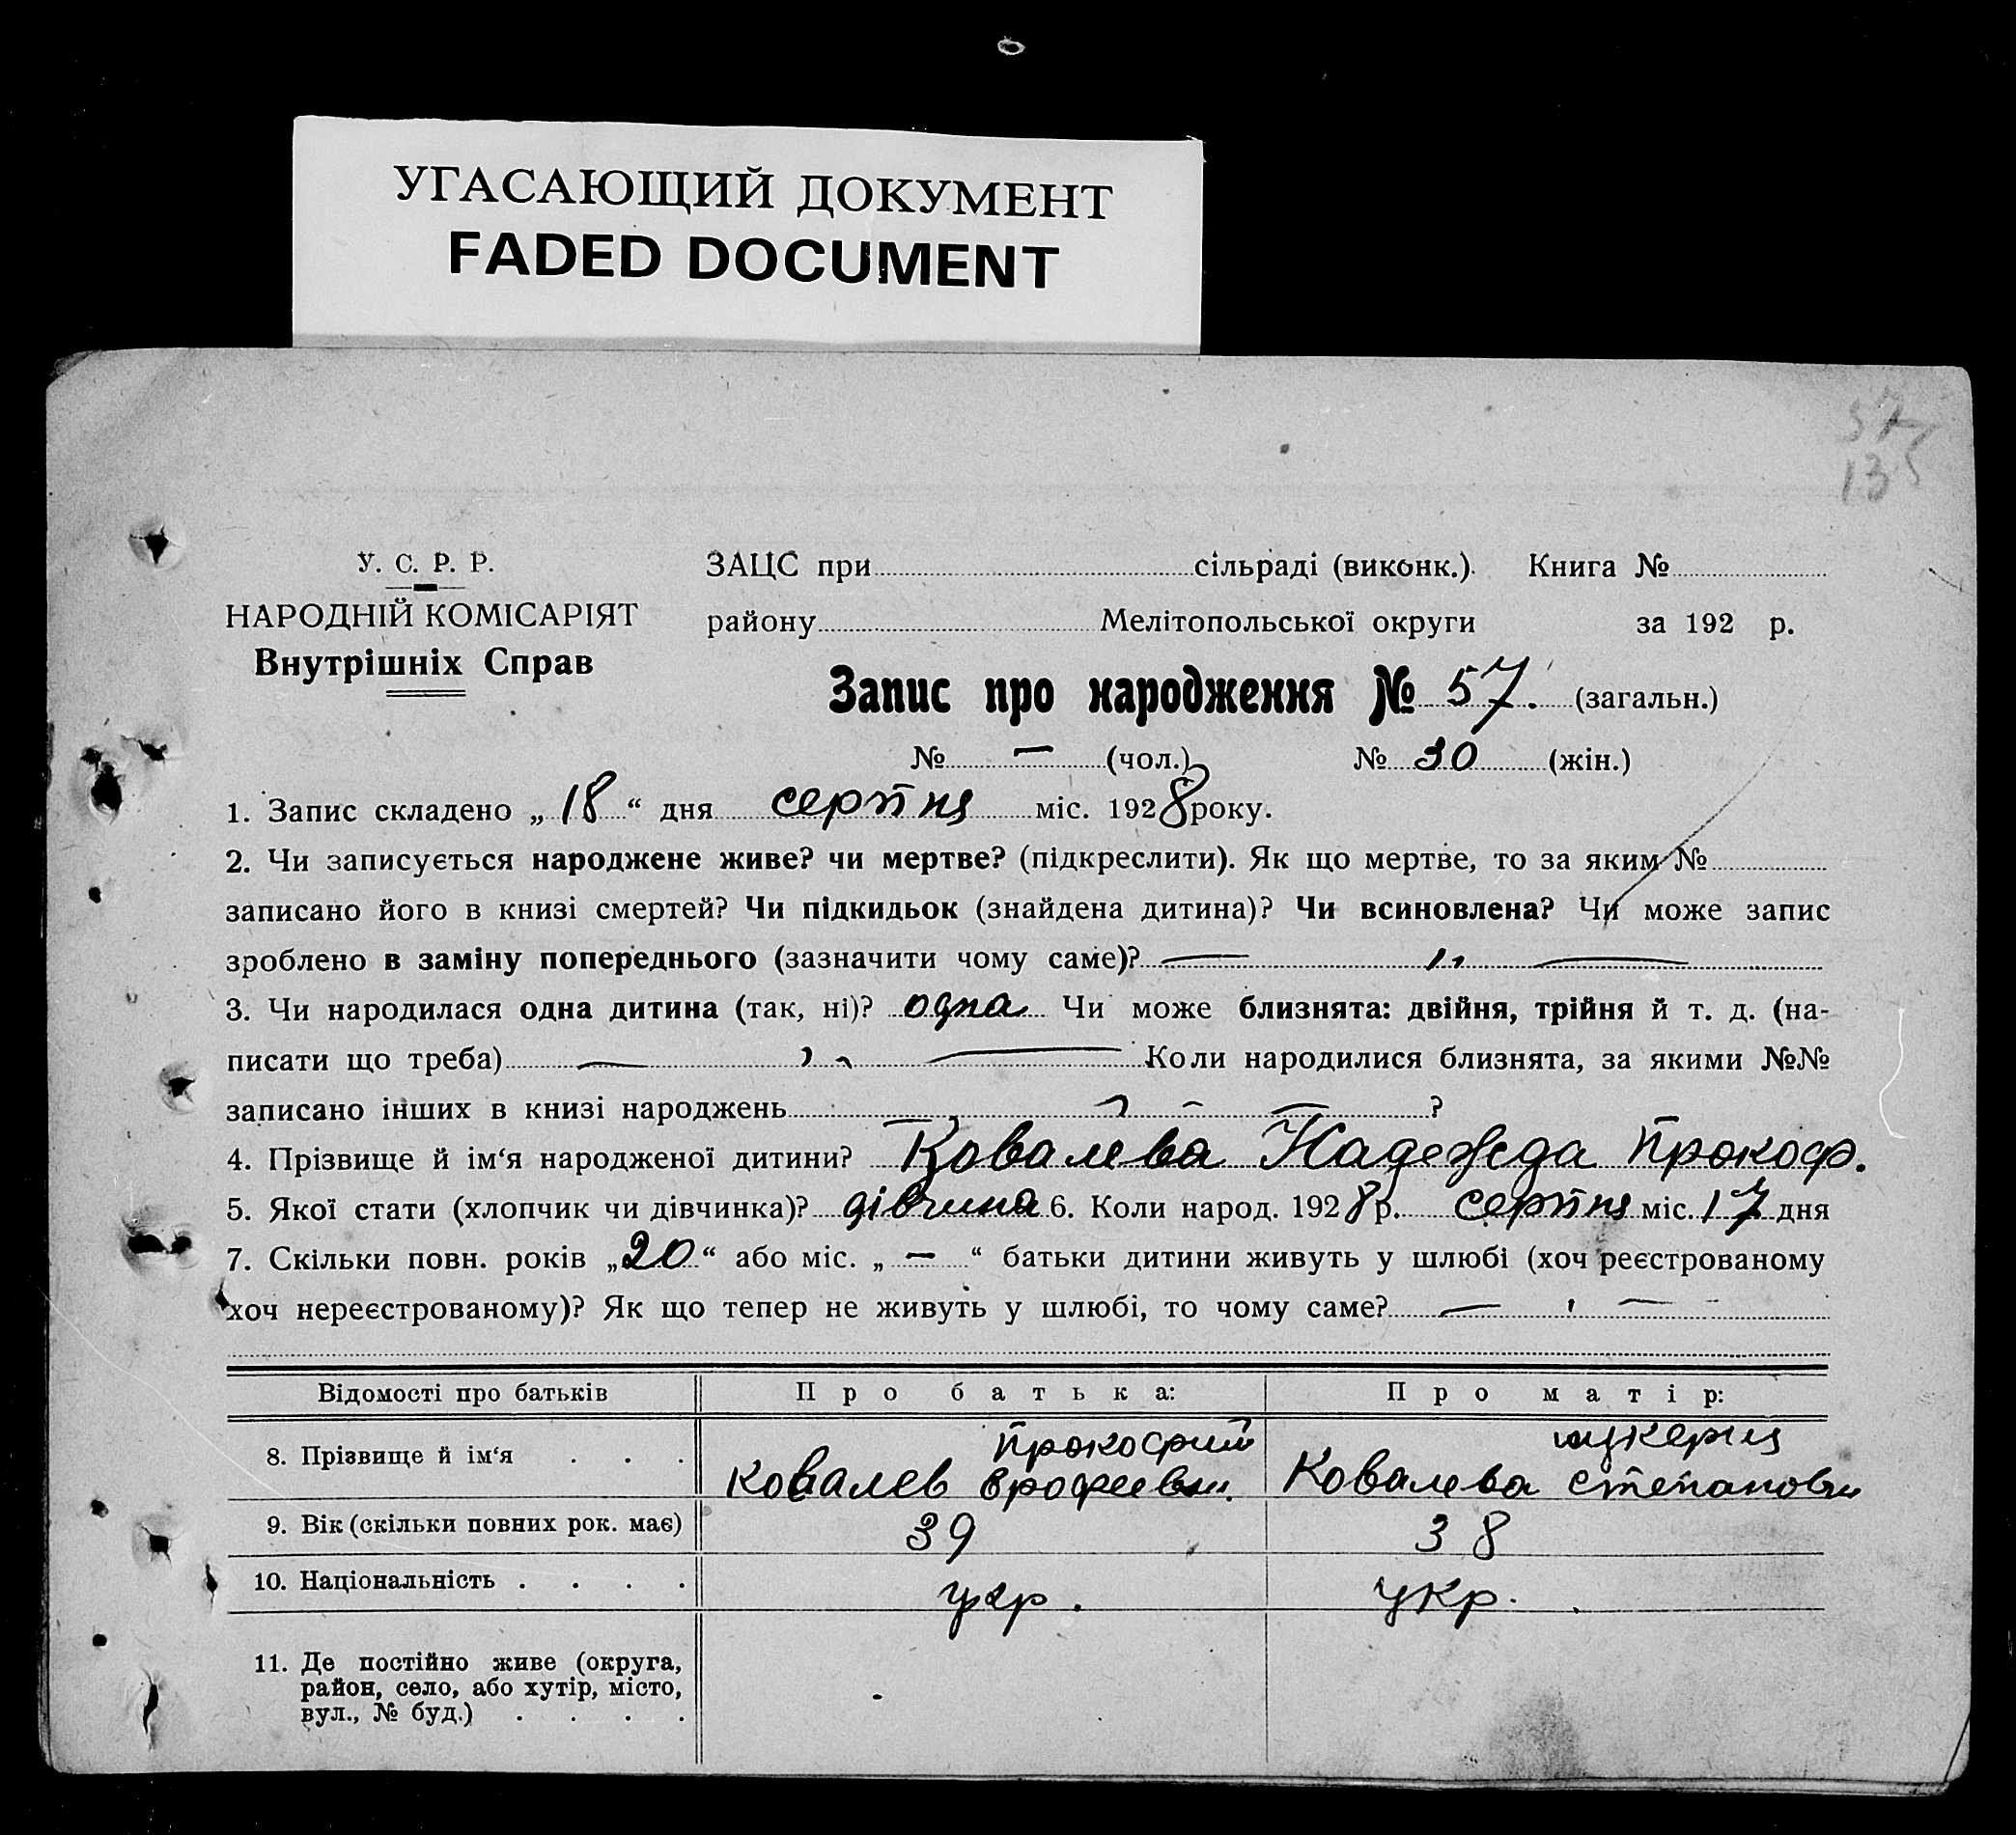 УГАСАЮЩИЙ ДОКУМЕНТ
FADED DOCUMENT
57
135
У. С. Р. Р.
НАРОДНІЙ КОМІСАРІЯТ
Внутрішніх Справ
ЗАЦС при сільраді (виконк.). Книга №
району Мелітопольської округи за 192 р.
Запис про народження № 57. (загальн.)
№ — (чол.) № 30 (жін.)
1. Запис складено „18“ дня серпня міс. 1928 року.
2. Чи записується народжене живе? чи мертве? (підкреслити). Як що мертве, то за яким №
записано його в книзі смертей? Чи підкидьок (знайдена дитина)? Чи всиновлена? Чи може запис
зроблено в заміну попереднього (зазначити чому саме)? — „ —
3. Чи народилася одна дитина (так, ні)? одна Чи може близнята: двійня, трійня й т. д. (на-
писати що треба) — „ — Коли народилися близнята, за якими №№
записано інших в книзі народжень ?
4. Прізвище й ім‘я народженої дитини? Ковалева Надежда Прокоф.
5. Якої стати (хлопчик чи дівчинка)? дівчина 6. Коли народ. 1928 р. серпня міс. 17 дня
7. Скільки повн. років „20“ або міс. „—“ батьки дитини живуть у шлюбі (хоч реєстрованому
хоч нереєстрованому)? Як що тепер не живуть у шлюбі, то чому саме? — „ —
Відомості про батьків Про батька: Про матір:
8. Прізвище й ім‘я . . . Прокофий
Ковалев Ерофеевич. Ковалева Степановн
9. Вік (скільки повних рок. має) 39 38
10. Національність . . . . укр. укр.
11. Де постійно живе (округа,
район, село, або хутір, місто,
вул., № буд.) . . . .